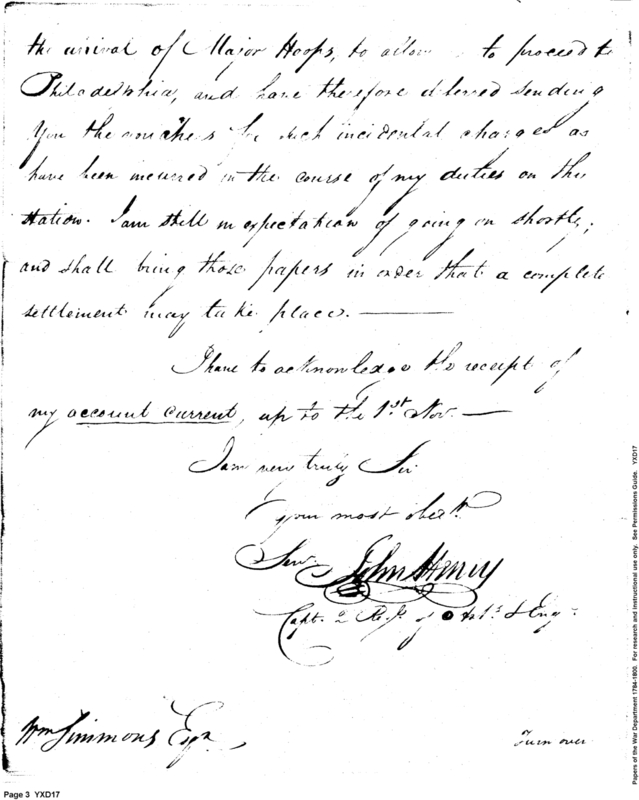 the arrival of Major Hoops, to allow to proceed to
Philadelphia, and have therefore deferred sending
you the vouchers for such incidental charges as
have been incurred in the course of my duties on this
station. I am still in expectation of going on shortly;
and shall bring those papers in order that a complete
settlement may take place. ———
I have to acknowledge the receipt of
my account current, up to the 1st Nov. —
I am very truly Sir
your most obedt.
Serv.
John Henry
Capt. 2 Regt. of Arts. & Engr.
Wm Simmons Esqr.
Turn over
Page 3 YXD17
Papers of the War Department 1784-1800. For research and instructional use only. See Permissions Guide. YXD17